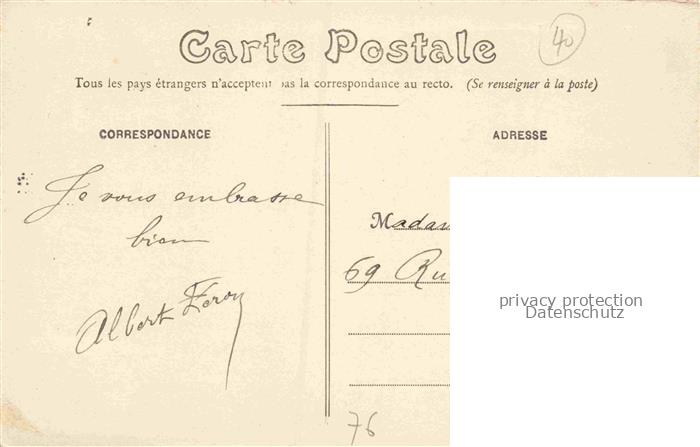 40
Carte Postale
Tous les pays étrangers n'acceptent pas la correspondance au recto. (Se renseigner à la poste)
CORRESPONDANCE
ADRESSE
Je vous embrasse
bien
Albert
Madam
69 Ru
privacy protection
Datenschutz
76